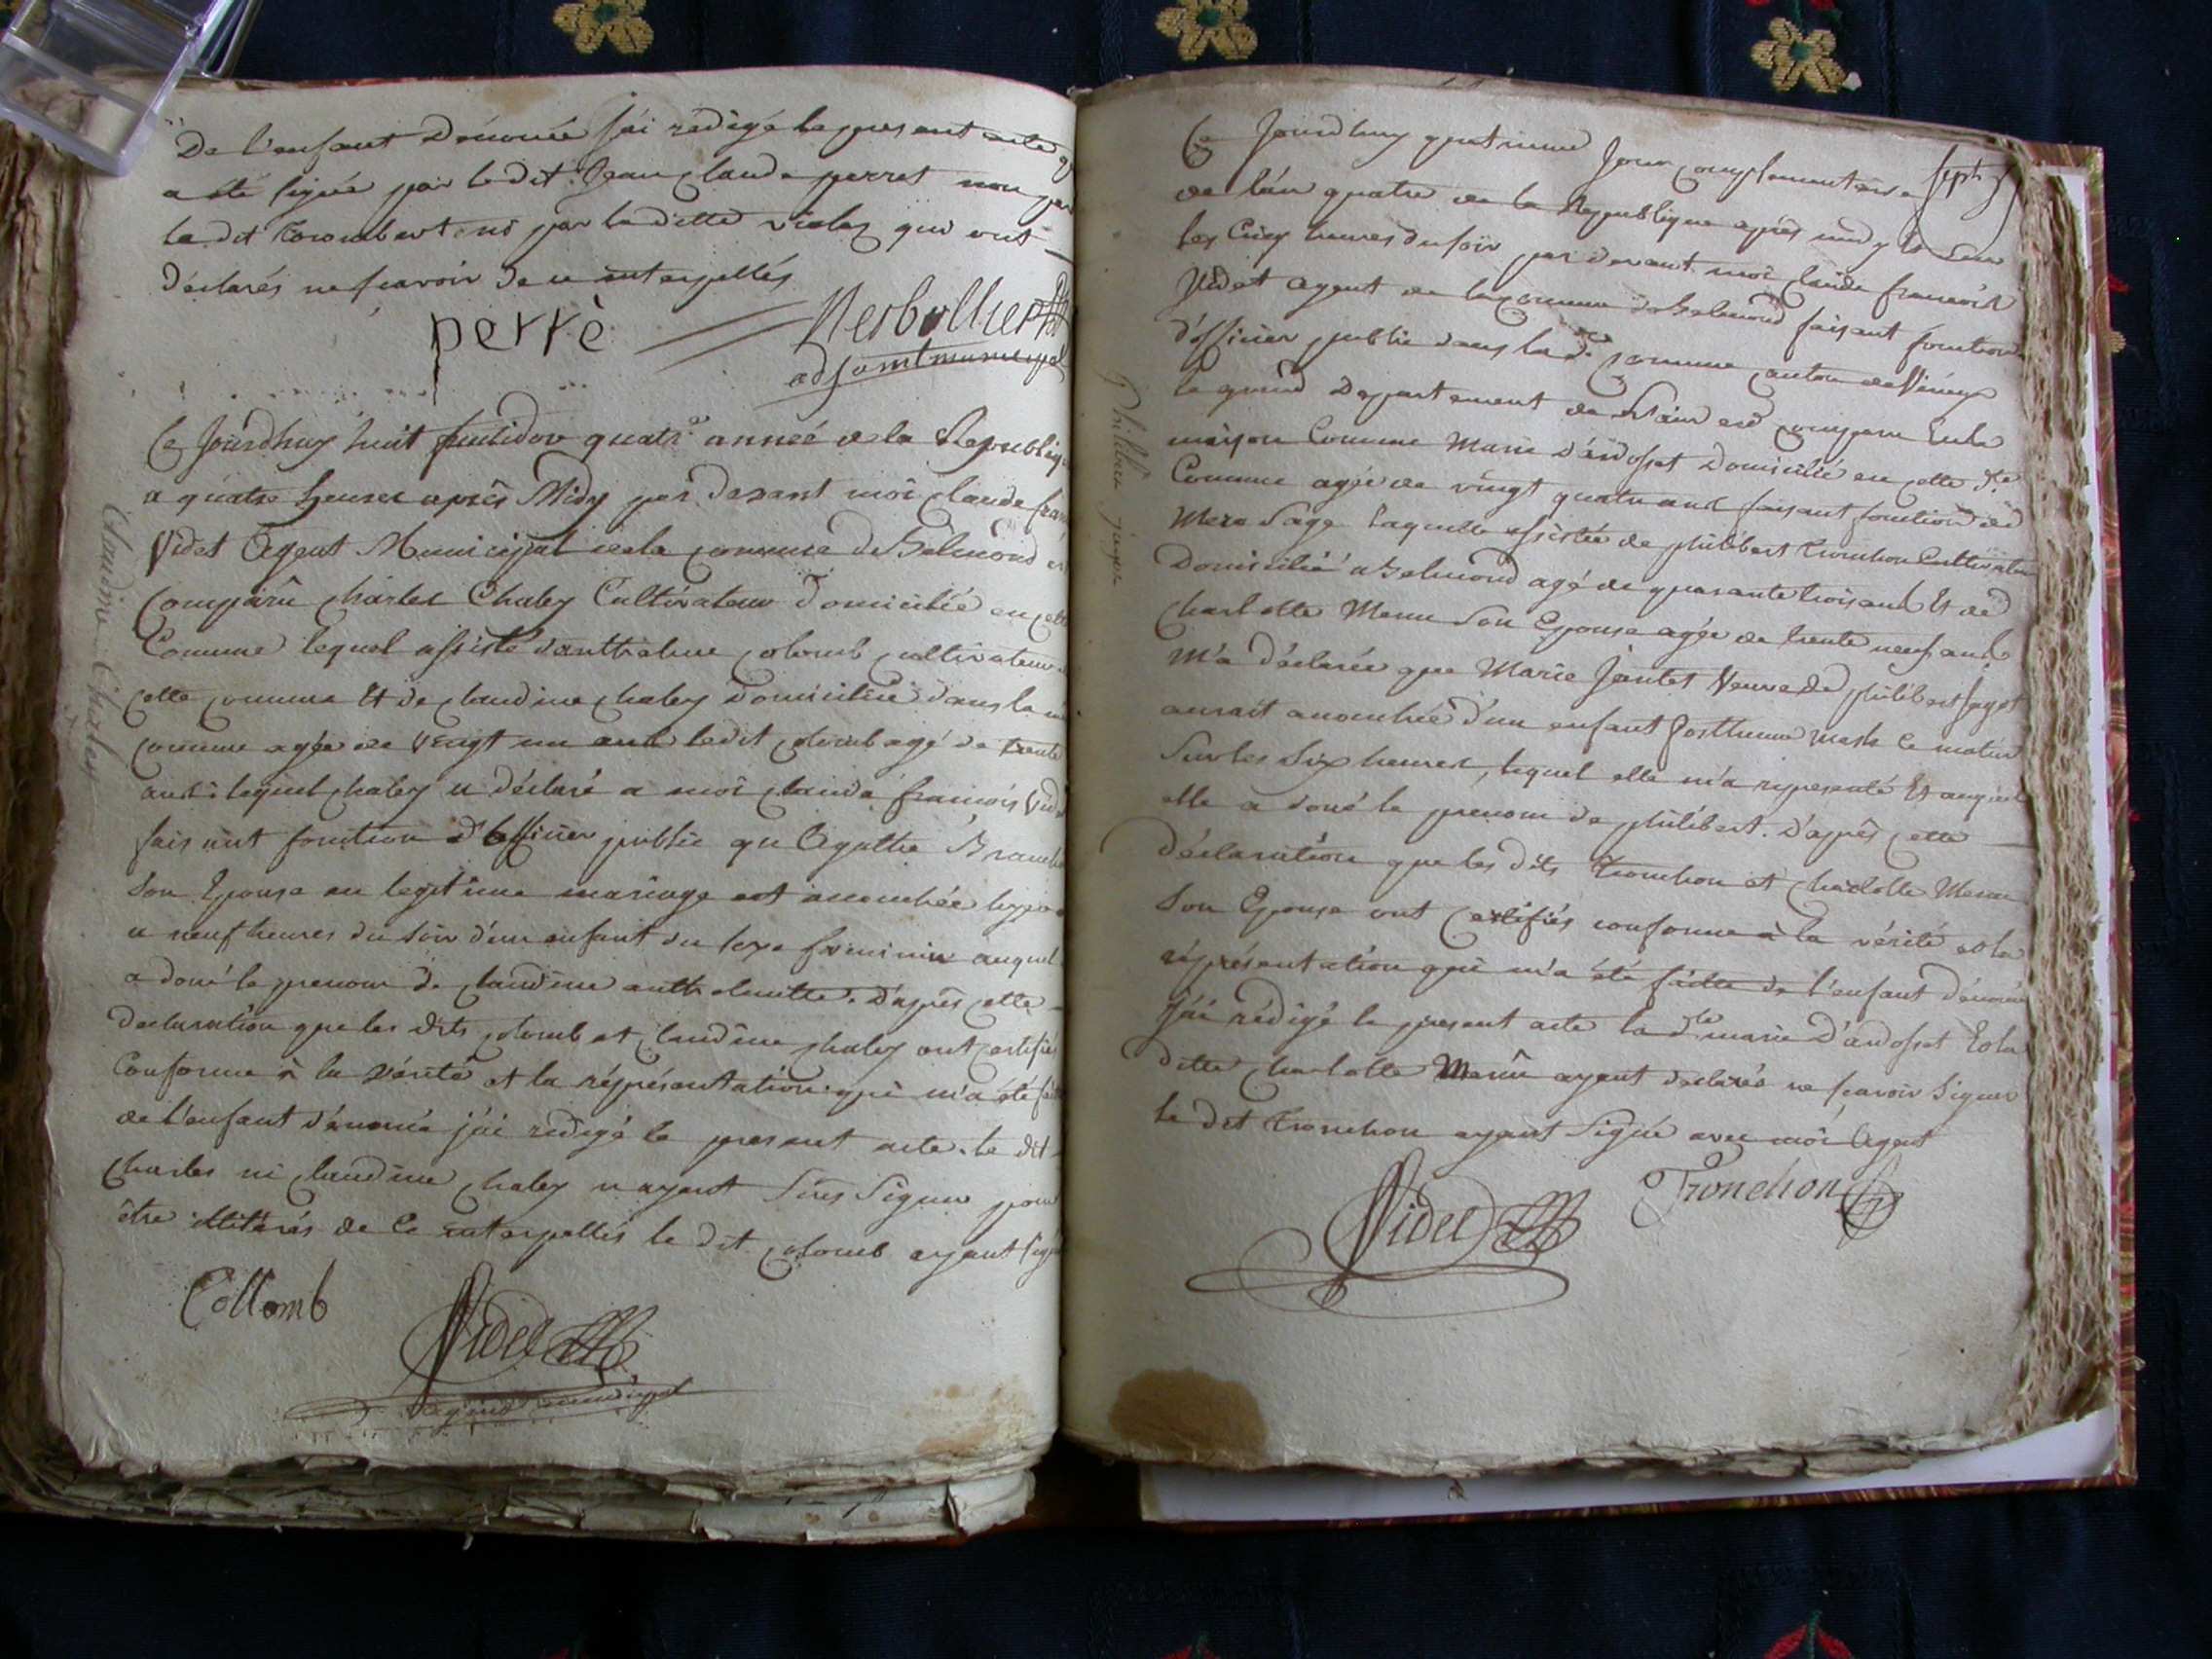 De l'enfant dénomé j'ai rédigé le present acte
a été signée par le dit Jean claude perret non par
le dit Corombert ni par la ditte violey qui ont
déclarés ne scavoir de ce interpellés
perrè
Nerbollier
adjoint municipal
Ce Jourdhuy huit fructidor quatre année de la Republiq
a quatre heures après Midy par devant moi claude fran
Videt Agent Municipal de la commune de Belmond
Comparû charles Chaley Cultivateur domicilié en cette
Commune lequel assisté d'anthelme colomb cultivateur
cette commune Et de claudine chaley domiciliée dans la
commune agée de vingt un ans ledit colomb agé de trente
ans lequel chaley a déclaré a moi claude francois Videt
faisant fonction d'officier public qu'Agathe
Son Epouse en legitime mariage est accouchée
a neuf heures du soir d'un enfant du sexe feminin auquel
a doné le prenom de claudine anthelmette. d'après cette
declaration que les dits colomb et claudine chaley ont certifiés
Conforme à la vérité et la réprésentation qui m'a été
de l'enfant dénomé j'ai redigé le present acte. le dit
Charles ni claudine chaley n'ayant Sûs Signer pour
être illitérés de Ce interpellés le dit colomb ayant signé
Collomb
Videt
agent municipal
Claudine Chaley
Ce Jourdhuy quatrieme Jour complementaire sept
de l'an quatre de la Republique après midy
les Cinq heures du soir par devant moi claude francois
Videt agent de la commune de Belmond faisant fonction
d'officier public dans lad. commune canton de Virieux
le grand Departement de l'Ain est comparu En la
maison Commune Marie d'andosset domiciliée en cette dte
Commune agée de vingt quatre ans faisant fonction de
Mere Sage laquelle assistée de philibert tronchon Cultivateur
Domicilié a Belmond agé de quarante trois ans Et de
charlotte Menu Son Epouse agée de trente neuf ans
m'a déclarée que Marie Jantet Veuve de philibert
aurait accouchée d'un enfant Posthume masle ce matin
Sur les Six heures, lequel elle m'a representé Et auquel
elle a doné le prenom de philibert. d'après cette
déclaration que les dits tronchon et charlotte Menu
Son Epouse ont certifiés conforme à la vérité et la
réprésentation qui m'a été faitte de l'enfant dénomé
J'ai rédigé le present acte la dte marie D'andosset Et la
ditte charlotte Menû ayant declarés ne scavoir Signer
le dit tronchon ayant Signé avec moi Agent
Videt
Tronchon